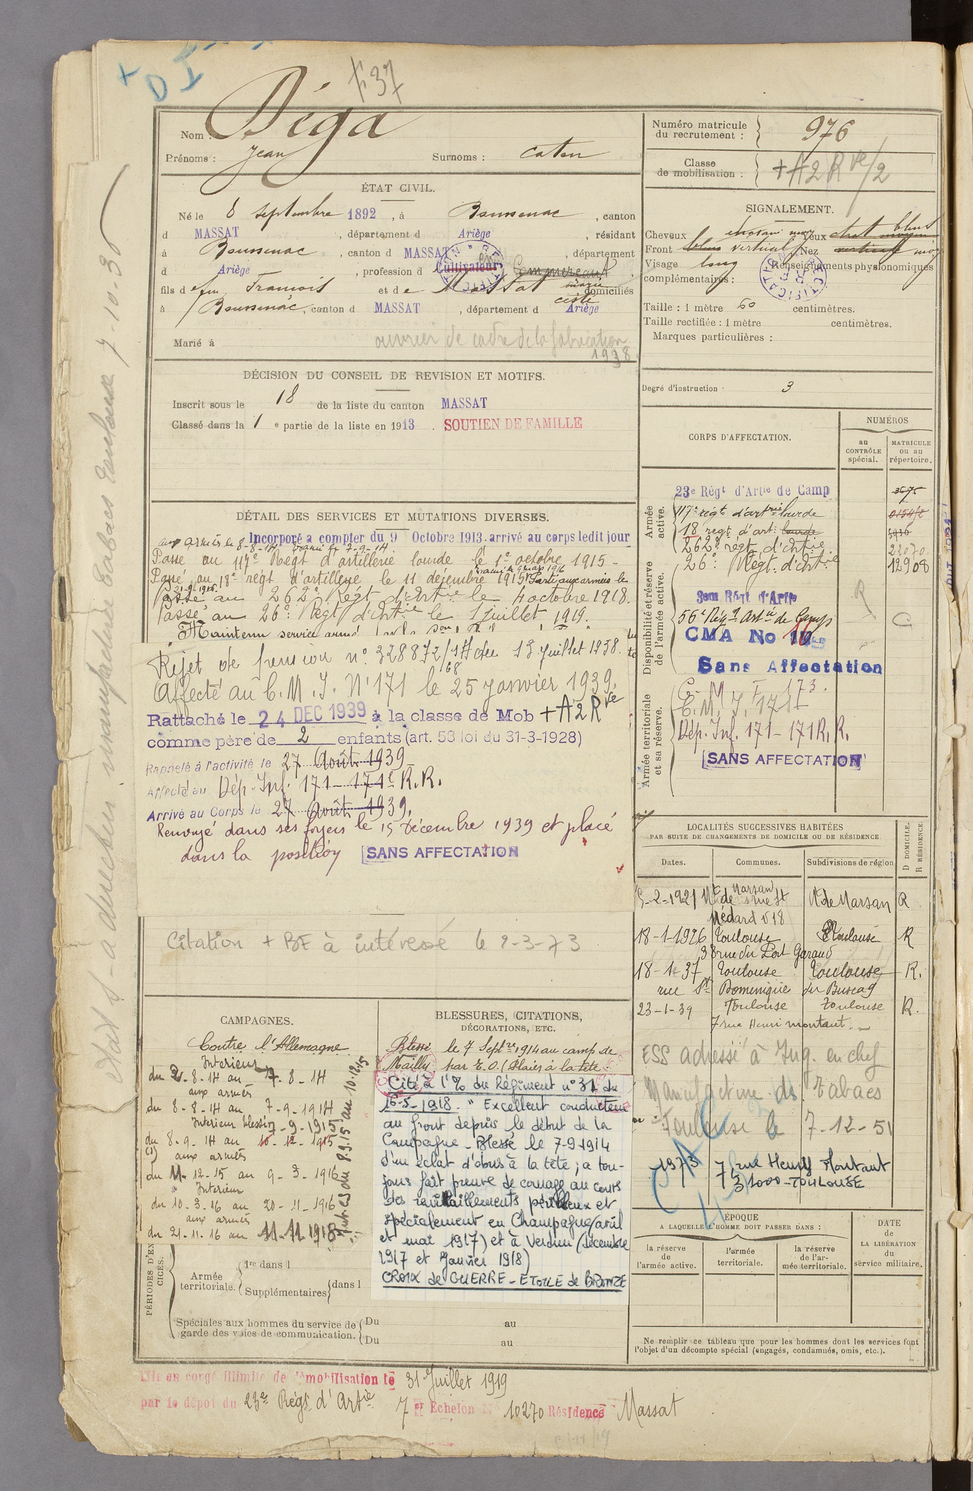 + D I
F 37
Nom : Déga
Prénoms : Jean Surnoms : caten
ÉTAT CIVIL.
Né le 8 septembre 1892, à Boussenac, canton
d MASSAT, département d Ariège, résidant
à Boussenac, canton d MASSAT, département
d Ariège, profession d Cultivateur
fils de feu Francois et de domiciliés
à Boussenac, canton d MASSAT, département d Ariège
Marié à
ouvrier de cadre de la fabrication
1938
DÉCISION DU CONSEIL DE REVISION ET MOTIFS.
Inscrit sous le 18 de la liste du canton MASSAT
Classé dans la 1 e partie de la liste en 1913. SOUTIEN DE FAMILLE
DÉTAIL DES SERVICES ET MUTATIONS DIVERSES.
Incorporé a compter du 9 Octobre 1913. arrivé au corps ledit jour
aux armées le 8-8-14.
Passé au 117e Régt d'artillerie lourde le 1er octobre 1915 -
Passé au 18e régt d'artillerie le 11 décembre 1915. Parti aux armées le
21-9-1916.
Passé au 262e Régt d'Artie le 4 octobre 1918.
Passé au 26e Régt d'Artie le 1 juillet 1919.
Maintenu service armé
Rejet de pension n° 328872/1H du 13 juillet 1938.
68
Affecté au C. M. I. N° 171 le 25 janvier 1939.
Rattaché le 24 DEC 1939 à la classe de Mob + A2Rve
comme père de 2 enfants (art. 53 loi du 31-3-1928)
Rappelé à l'activité le 27 Août 1939
Affecté au Dép. Inf. 171 - 171e R.R.
Arrivé au Corps le 27 Août 1939.
Renvoyé dans ses foyers le 15 décembre 1939 et placé
dans la position SANS AFFECTATION
Citation + BE à intéressé le 2-3-73
CAMPAGNES.
Contre l'Allemagne
Intérieur
du 2-8-14 au 7-8-14
aux armées
du 8-8-14 au 7-9-1914
Intérieur blessé
du 8-9-14 au 10-12-1915
(1) aux armées
du 11-12-15 au 9-3-1916
Intérieur
du 10-3-16 au 20-11-1916
aux armées
du 21-11-16 au 11-11-1918
PÉRIODES D'EXERCICES.
Armée territoriale. 1re dans l
Supplémentaires dans l
Spéciales aux hommes du service de garde des voies de communication. Du au
Du au
BLESSURES, CITATIONS,
DÉCORATIONS, ETC.
Blessé le 7 Septre 1914 au camp de
Mailly par E.O. (Plaies à la tête)
Cité à l'O. du Régiment n° 31 du
16-5-1918. " Excellent conducteur
au front depuis le début de la
Campagne - Blessé le 7-9-1914
d'un éclat d'obus à la tête, a tou-
jours fait preuve de courage au cours
des ravitaillements périlleux et
spécialement en Champagne (avril
et mai 1917) et à Verdun (décembre
1917 et Janvier 1918)
CROIX de GUERRE - ETOILE de BRONZE
Numéro matricule
du recrutement : 976
Classe
de mobilisation : + A2Rve/2
SIGNALEMENT.
Cheveux Yeux
Front vertical Nez
Visage long Renseignements physionomiques
complémentaires :
Taille : 1 mètre 60 centimètres.
Taille rectifiée : 1 mètre centimètres.
Marques particulières :
Degré d'instruction : 3
CORPS D'AFFECTATION.
NUMÉROS
au CONTRÔLE spécial.
MATRICULE ou au répertoire.
Armée active.
23e Régt d'Artie de Camp
117e régt d'artrie lourde
18 régt d'art. lourde
262e régt d'Artie
26e Régt d'Artie 12908
Disponibilité et réserve de l'armée active.
56e Régt Artie de Camp
CMA No
Sans Affectation
Armée territoriale et sa réserve.
C. M. I. 173.
C. M. I. 171
Dép. Inf. 171 - 171 R.R.
SANS AFFECTATION
LOCALITÉS SUCCESSIVES HABITÉES
PAR SUITE DE CHANGEMENTS DE DOMICILE OU DE RÉSIDENCE.
Dates. Communes. Subdivisions de région D DOMICILE. R RÉSIDENCE.
5-2-1921 Mt de Marsan rue St Médard 18 Mt de Marsan R
18-1-1926 Toulouse Toulouse R
38 rue du Port Garaud
18-1-37 Toulouse Toulouse R.
rue St Dominique
23-1-39 Toulouse Toulouse R.
7 rue Henri Montaut.
ESS adressé à Ing. en chef
Manufacture des Tabacs
Toulouse le 7-12-51
1973 7, rue Henry Montaut
31000 - TOULOUSE
ÉPOQUE
A LAQUELLE L'HOMME DOIT PASSER DANS :
DATE DE LA LIBÉRATION du service militaire.
la réserve de l'armée active.
l'armée territoriale.
la réserve de l'armée territoriale.
Ne remplir ce tableau que pour les hommes dont les services font
l'objet d'un décompte spécial (engagés, condamnés, omis, etc.).
Mis en congé illimité de démobilisation le 31 Juillet 1919
par le dépôt du 23e Régt d'Artie 7e Echelon N° 10270 Résidence Massat